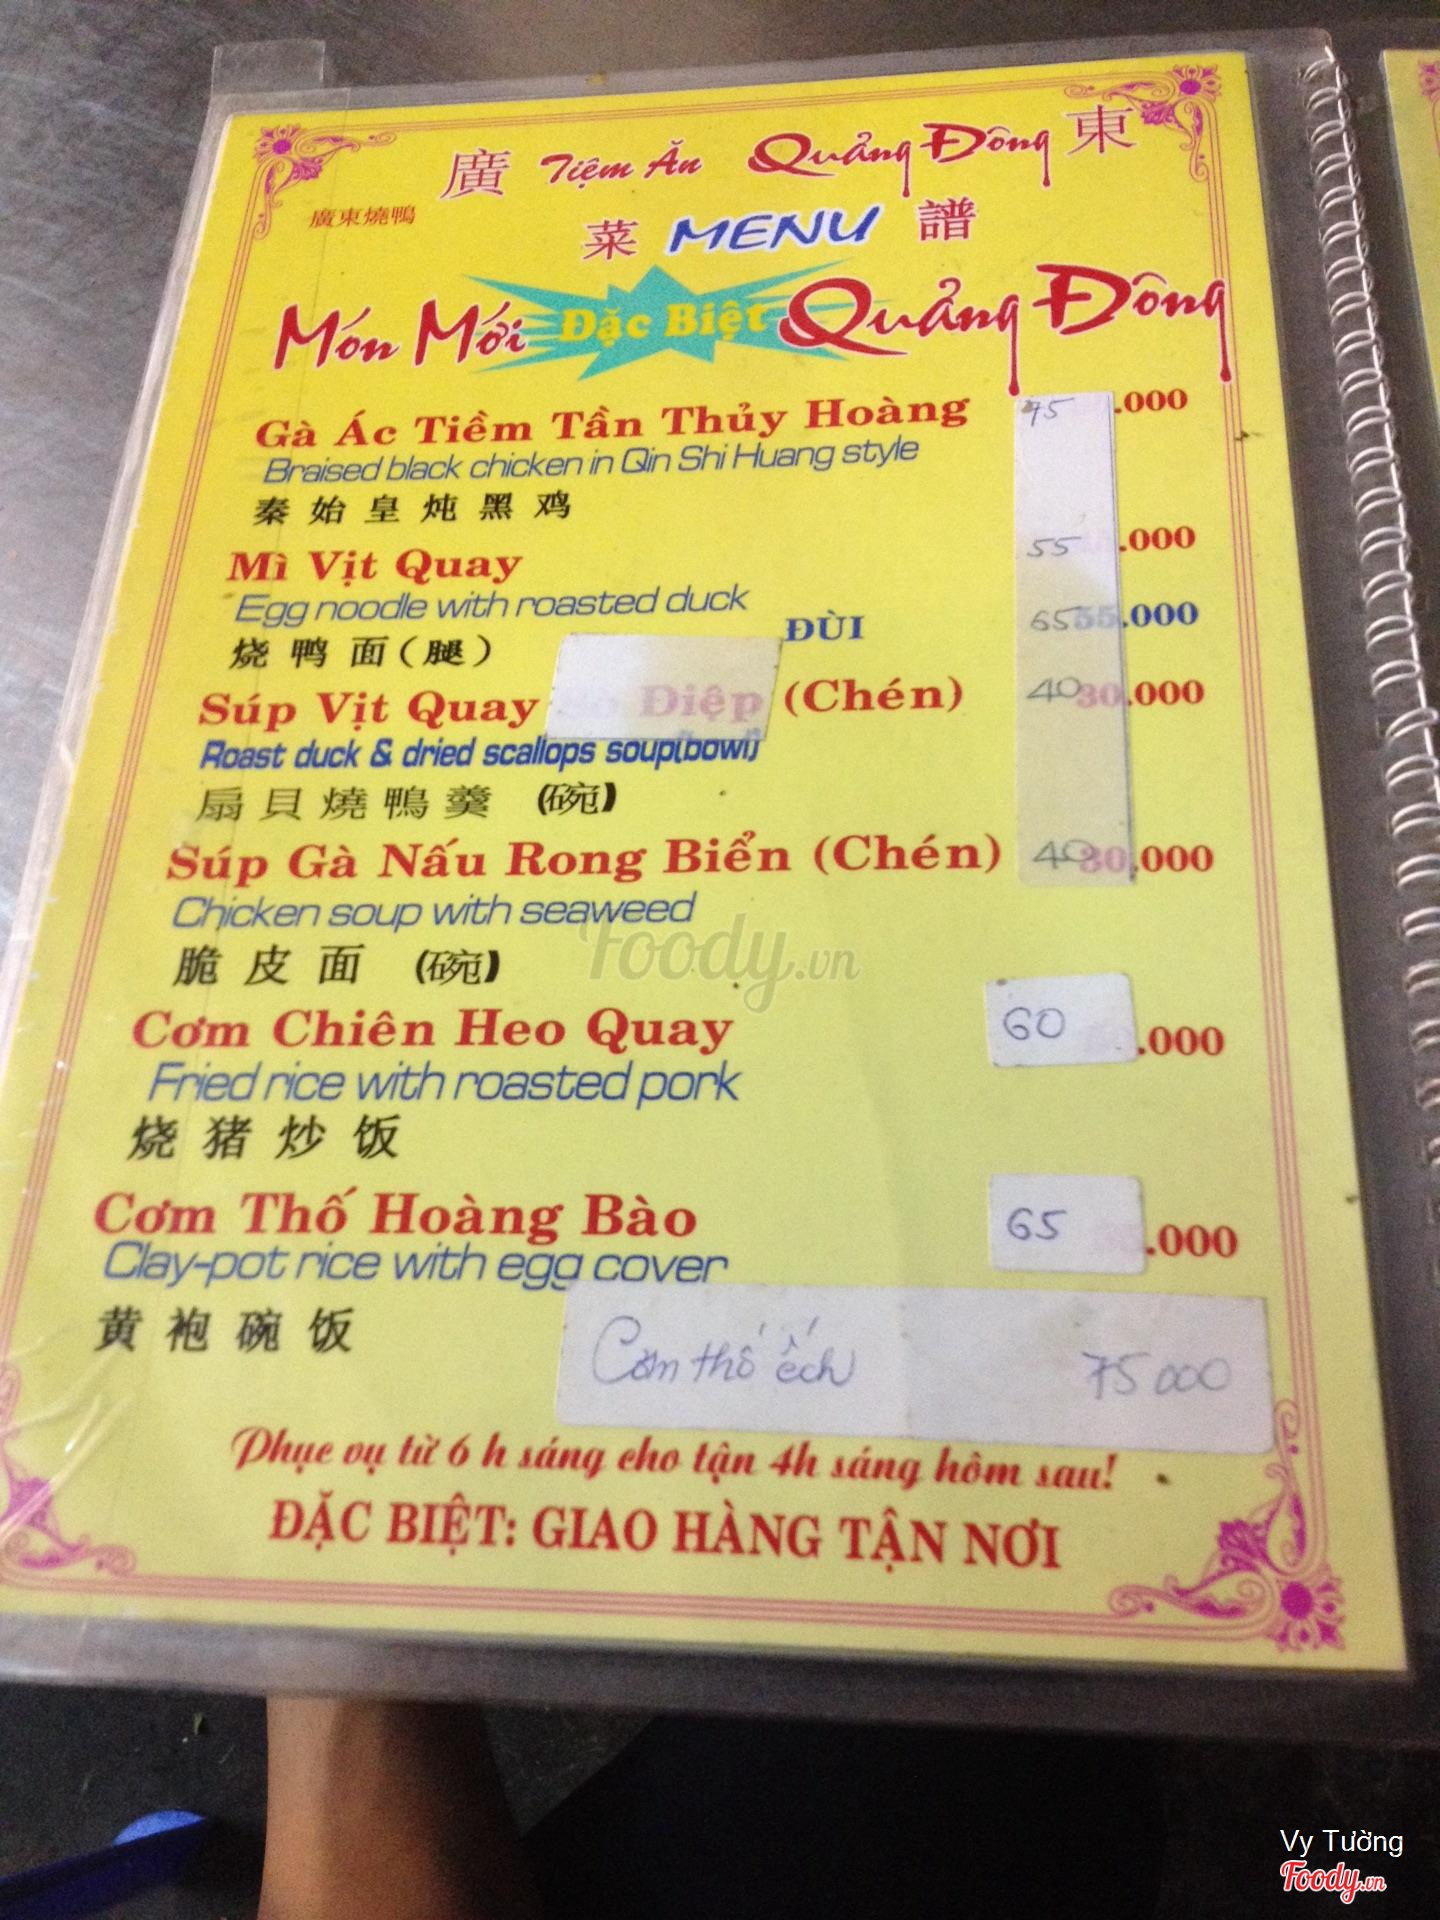 廣 Tiệm Ăn Quảng Đông 東
廣東燒鴨
菜 MENU 譜
Món Mới Đặc Biệt Quảng Đông
Gà Ác Tiềm Tần Thủy Hoàng 75 .000
Braised black chicken in Qin Shi Huang style
秦始皇炖黑鸡
Mì Vịt Quay 55 .000
Egg noodle with roasted duck
烧鸭面(腿) ĐÙI 65 55.000
Súp Vịt Quay Sò Điệp (Chén) 40 30.000
Roast duck & dried scallops soup(bowl)
扇貝燒鴨羹 (碗)
Súp Gà Nấu Rong Biển (Chén) 40 30.000
Chicken soup with seaweed
脆皮面 (碗)
Cơm Chiên Heo Quay 60 .000
Fried rice with roasted pork
烧猪炒饭
Cơm Thố Hoàng Bào 65 .000
Clay-pot rice with egg cover
黄袍碗饭
Cơm thố ếch 75 000
Phục vụ từ 6 h sáng cho tận 4h sáng hôm sau!
ĐẶC BIỆT: GIAO HÀNG TẬN NƠI
Foody.vn
Vy Tường
Foody.vn